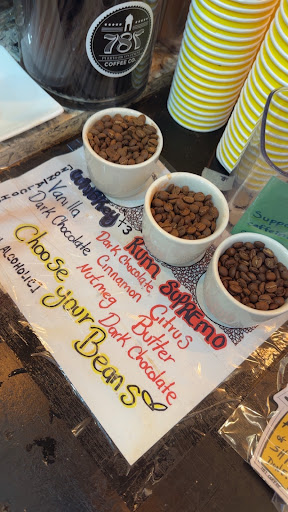 787
COFFEE CO.
+3
Vanilla
Dark Chocolate
RUM SUPREMO
Dark Chocolate
Cinnamon
Nutmeg
Citrus
Butter
Dark Chocolate
Choose your Beans